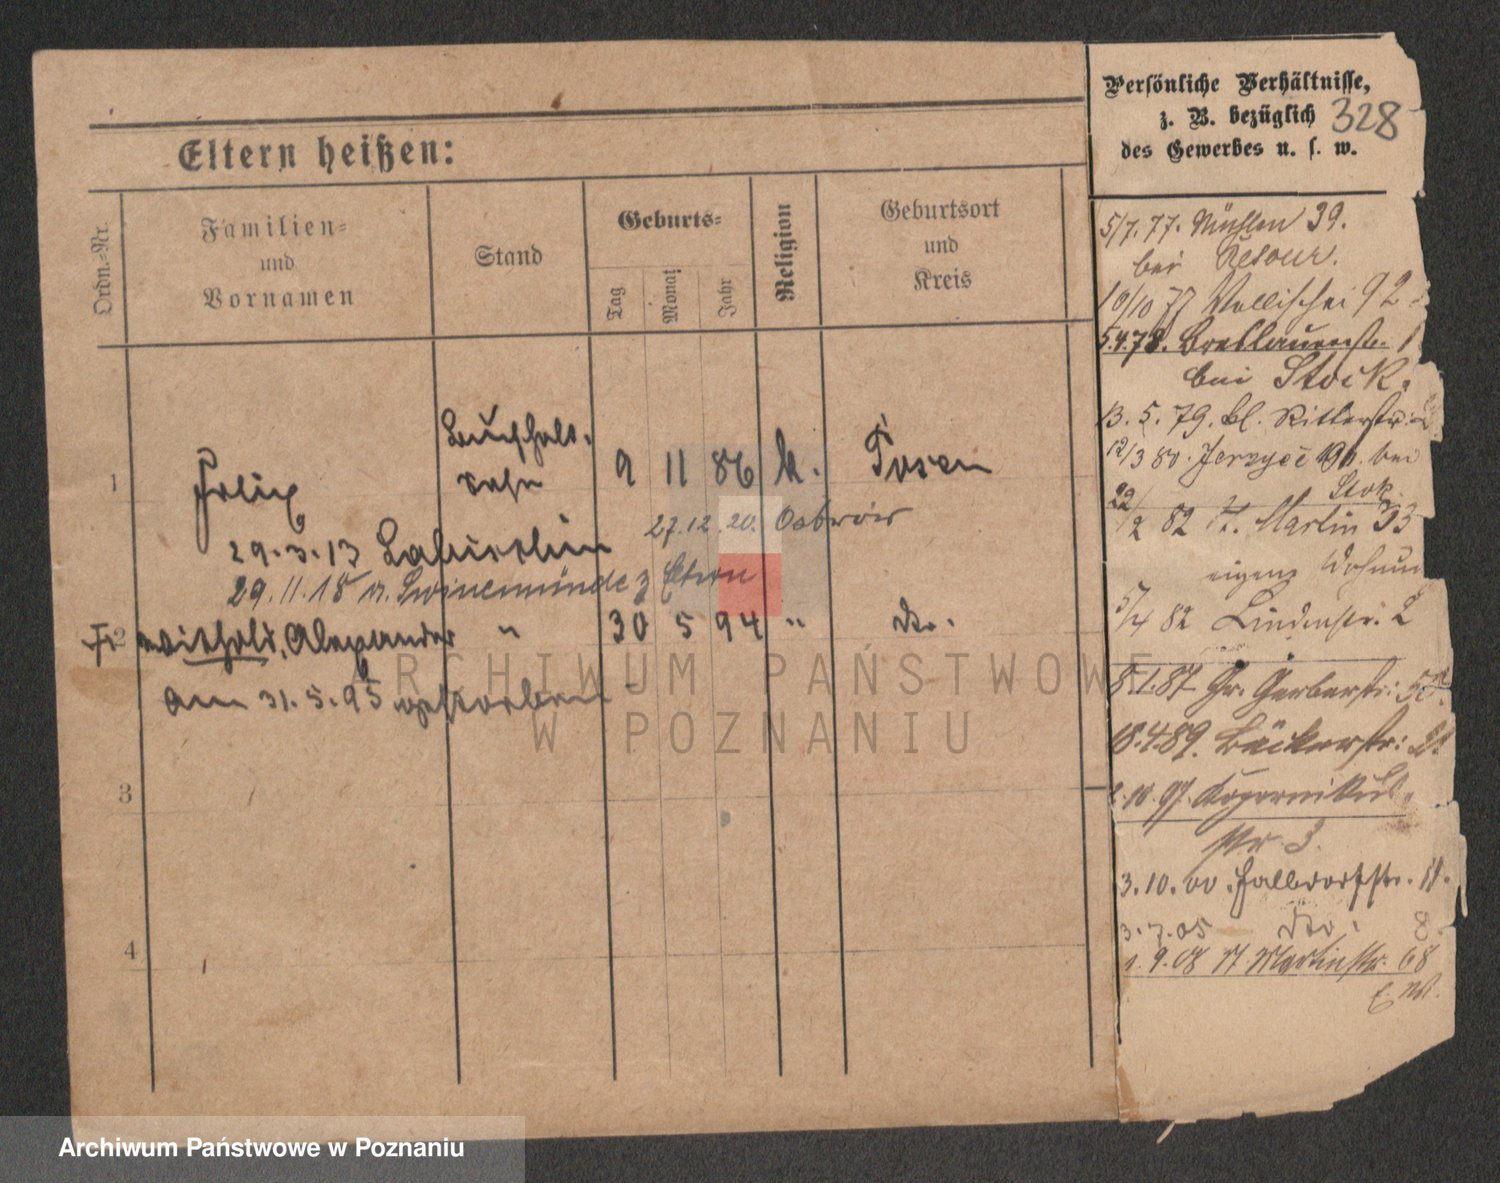 Eltern heißen:
Ordn.-Nr.
Familien-
und
Vornamen
Stand
Geburts-
Tag
Monat
Jahr
Religion
Geburtsort
und
Kreis
1
Felix
Buchhalt.
sohn
9 11 86 k. Posen
27.12.20. Ostrów
29.3.13 Labischin
29.11.18 v. Swinemünde z Eltern
2 Withold, Alexander " 30 5 94 " do.
am 31.5.95 gestorben
3
4
Persönliche Verhältnisse,
z. B. bezüglich
des Gewerbes u. s. w.
328
5/7.77. Mühlen 39.
bei
10/10 77 Wallischei 92
5.4.78. Breslauerstr.
bei Stock.
13.5.79. Kl. Ritterstr.
12/3 80. Jerzyce 90. bei
Stok.
22/2 82 St. Martin 33
eigene Wohnung
5/4 82 Lindenstr. 2
8.1.87 Gr. Gerberstr.
18.4.89. Bäckerstr.
10.97. Kopernikus
str 3.
3.10.00. Halbdorfstr. 11.
3.7.05 do. 8.
1.9.08 St. Martinstr. 68
ARCHIWUM PAŃSTWOWE
W POZNANIU
Archiwum Państwowe w Poznaniu